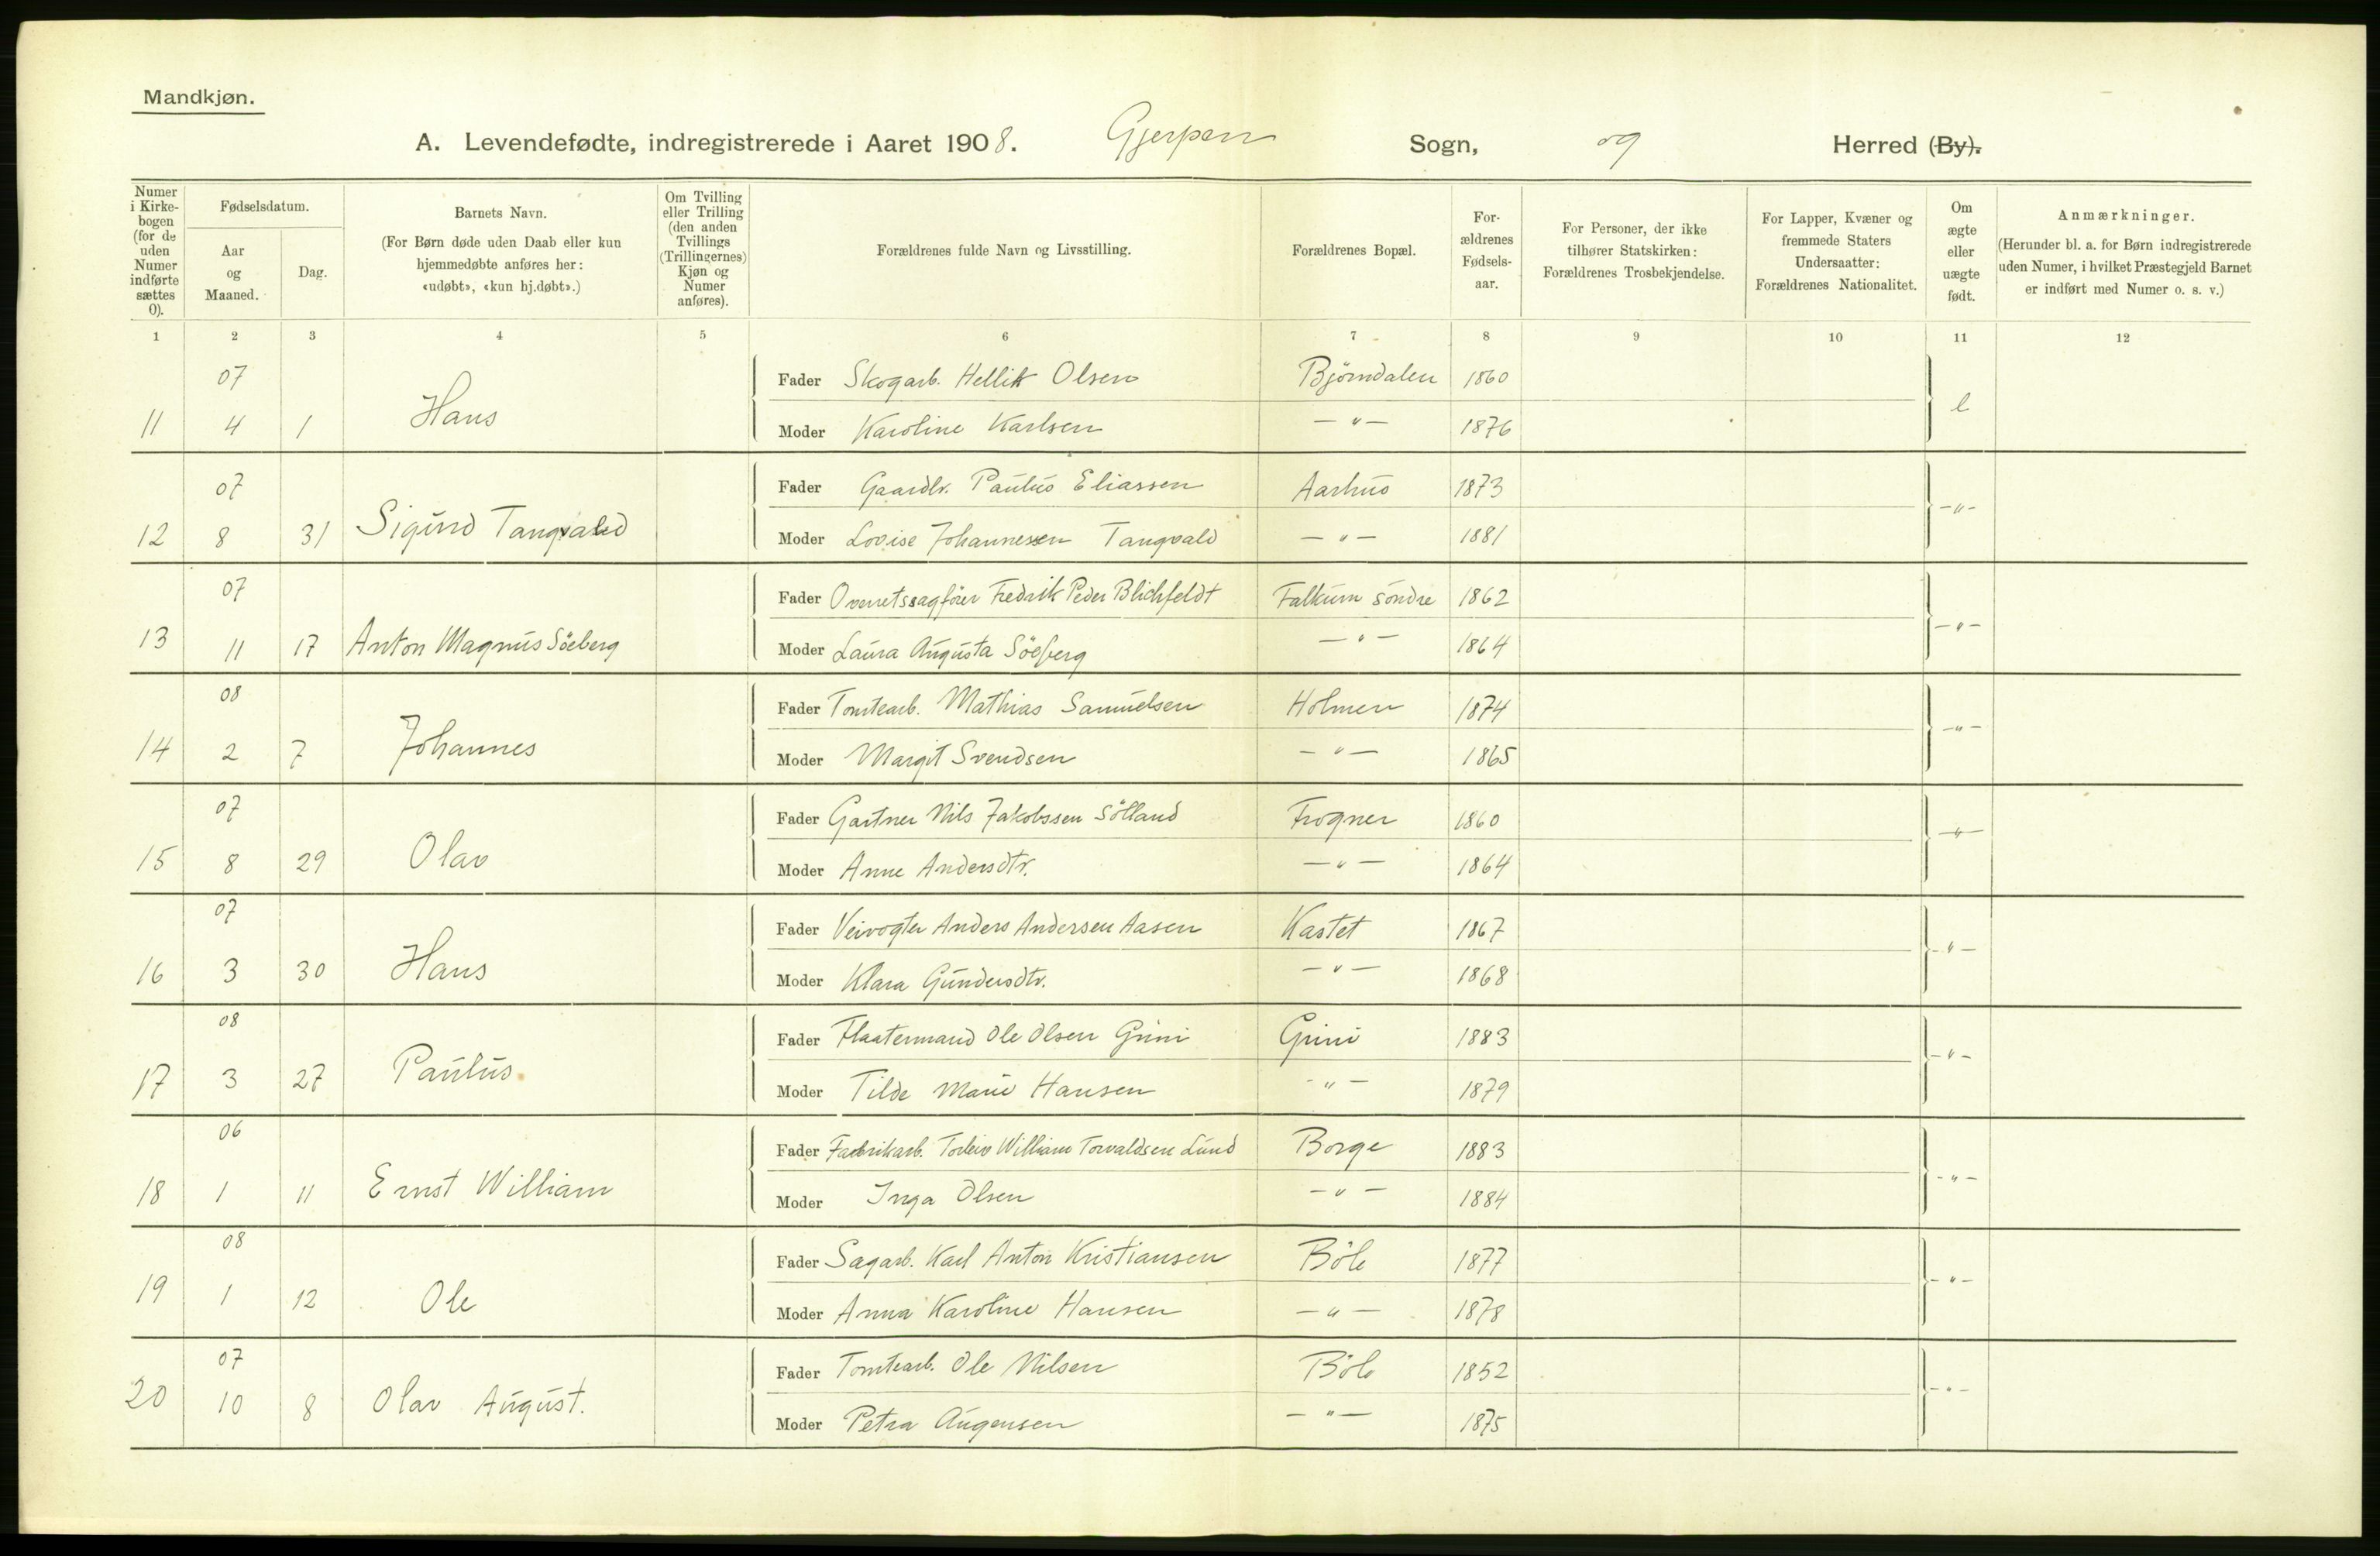 Mandkjøn.
A. Levendefødte, indregistrerede i Aaret 1908. Gjerpen Sogn, og Herred (By).
Numer i Kirkebogen (for de uden Numer indførte sættes 0).
Fødselsdatum.
Aar og Maaned.
Dag.
Barnets Navn.
(For Børn døde uden Daab eller kun hjemmedøbte anføres her: «udøbt», «kun hj.døbt».)
Om Tvilling eller Trilling (den anden Tvillings (Trillingernes) Kjøn og Numer anføres).
Forældrenes fulde Navn og Livsstilling.
Forældrenes Bopæl.
Forældrenes Fødselsaar.
For Personer, der ikke tilhører Statskirken: Forældrenes Trosbekjendelse.
For Lapper, Kvæner og fremmede Staters Undersaatter: Forældrenes Nationalitet.
Om ægte eller uægte født.
Anmærkninger.
(Herunder bl. a. for Børn indregistrerede uden Numer, i hvilket Præstegjeld Barnet er indført med Numer o. s. v.)
1 2 3 4 5 6 7 8 9 10 11 12
07 Fader Skogarb. Hellik Olsen Björndalen 1860
11 4 1 Hans Moder Karoline Karlsen — " — 1876 e
07 Fader Gaardbr. Paulus Eliassen Aarhus 1873
12 8 31 Sigurd Tangvald Moder Lovise Johannessen Tangvald — " — 1881 - " -
07 Fader Overretssagförer Fredrik Peder Blichfeldt Falkum söndre 1862
13 11 17 Anton Magnus Söeberg Moder Laura Augusta Söeberg — " — 1864 - " -
08 Fader Tomtearb. Mathias Samuelsen Holmen 1874
14 2 7 Johannes Moder Margit Svendsen — " — 1865 - " -
07 Fader Gartner Nils Jakobssen Sölland Frogner 1860
15 8 29 Olav Moder Anne Andersdtr. — " — 1864 - " -
07 Fader Veivogter Anders Andersen Aasen Kastet 1867
16 3 30 Hans Moder Klara Gundersdtr. — " — 1868 - " -
08 Fader Flaatermand Ole Olsen Grini Grini 1883
17 3 27 Paulus Moder Tilde Marie Hansen - " — 1879 - " -
06 Fader Fabrikarb. Torleiv William Torvaldsen Lund Borge 1883
18 1 11 Ernst William Moder Inga Olsen — " — 1884 - " -
08 Fader Sagarb. Karl Anton Kristiansen Böle 1877
19 1 12 Ole Moder Anna Karoline Hansen — " — 1878 - " -
07 Fader Tomtearb. Ole Nilsen Böle 1852
20 10 8 Olav August. Moder Petra Augensen — " — 1875 - " -